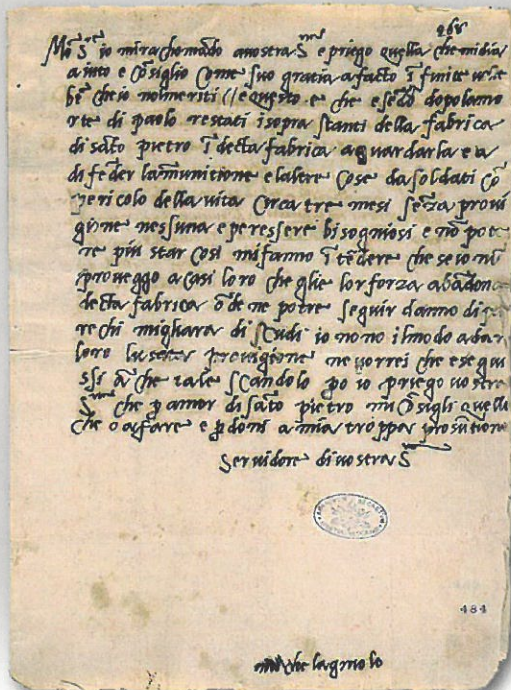 Mo S re io mirachomādo avostra S ria e priego quella che midia
aiuto e cōsiglio come suo gratia a facto ī finite volte
bē che io nolmeriti // e questo e che esēdo dopolamo
rte di paolo restati isopra stanti della fabrica
di sāto pietro ī decta fabrica a guardarla e a
difēder lamunitione e laltre cose da soldati cō
pericolo della vita circa tre mesi sēza provi
gione nessuna e peressere bisogniosi e nō pote
re piu star cosi mifanno ītēdere che se io nō
proveggo a casi loro che glie lor forza abādona
decta fabrica ōde ne potre seguir danno di pa
rechi migliara di scudi io nō o ilmodo a dar
loro provigione ne vorrei che esegui
ssi āche tale scandolo po io priego vostra
S ria che p amor di sāto pietro mi cōsigli quello
che o afare e pdoni a mia troppa prosūtione
Servidore di vostra S
484
michelagniolo